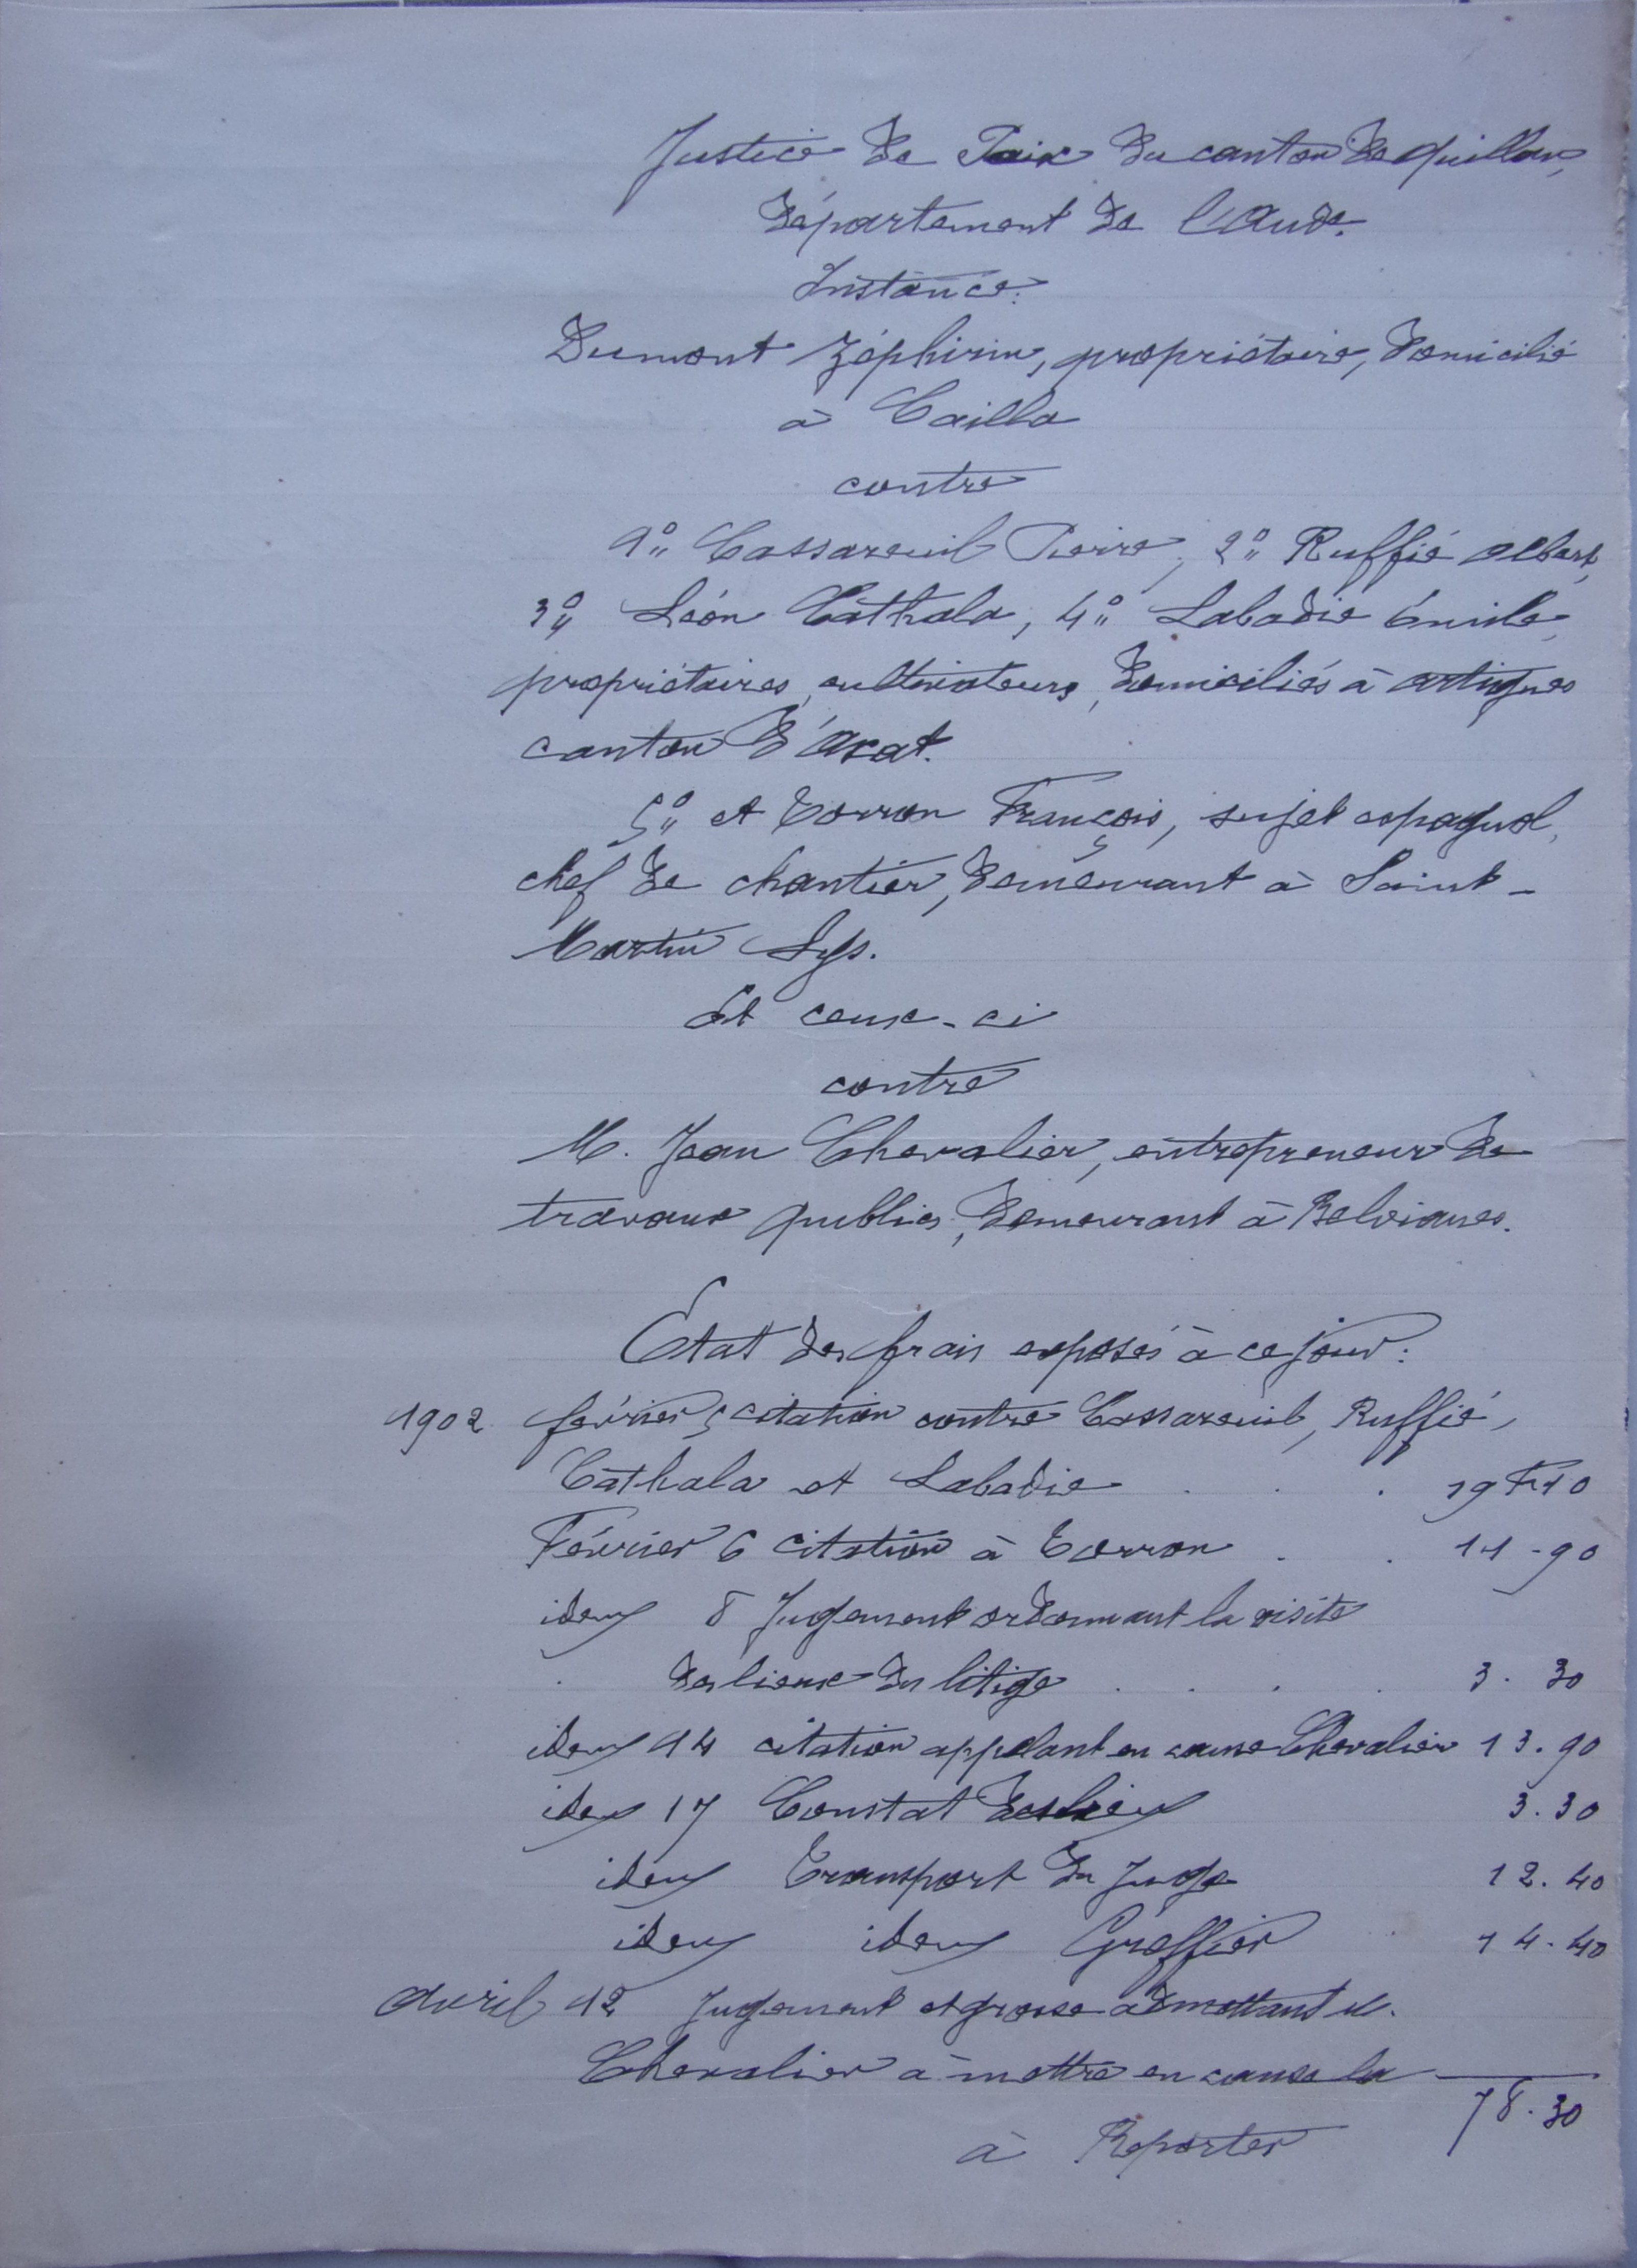 Justice de Paix du canton de Quillan,
Département de l'Aude.
Instance:
Dumont Zéphirin, propriétaire, domicilié
à Cailla
contre
1° Cassareuil Pierre, 2° Ruffié Albert,
3° Léon Cathala, 4° Labadie Émile,
propriétaires, cultivateurs, domiciliés à Artigues
canton d'Axat.
5° et Torron François, sujet espagnol,
chef de chantier, demeurant à Saint-
Martin Lys.
Et ceux-ci
contre
M. Jean Chevalier, entrepreneur de
travaux publics, demeurant à Belvianes.
Etat des frais exposés à ce jour:
1902 février 5 citation contre Cassareuil, Ruffié,
Cathala et Labadie . . . 19 Fr 10
Février 6 citation à Torron . . 11-90
idem 8 Jugement ordonnant la visite
des lieux du litige . . . . 3.30
idem 14 citation appelant en cause Chevalier 13.90
idem 17 Constat des lieux 3.30
idem Transport du Juge 12.40
idem idem Greffier 14.40
Avril 12 Jugement et grosse admettant M.
Chevalier à mettre en cause la
78.30
à Reporter